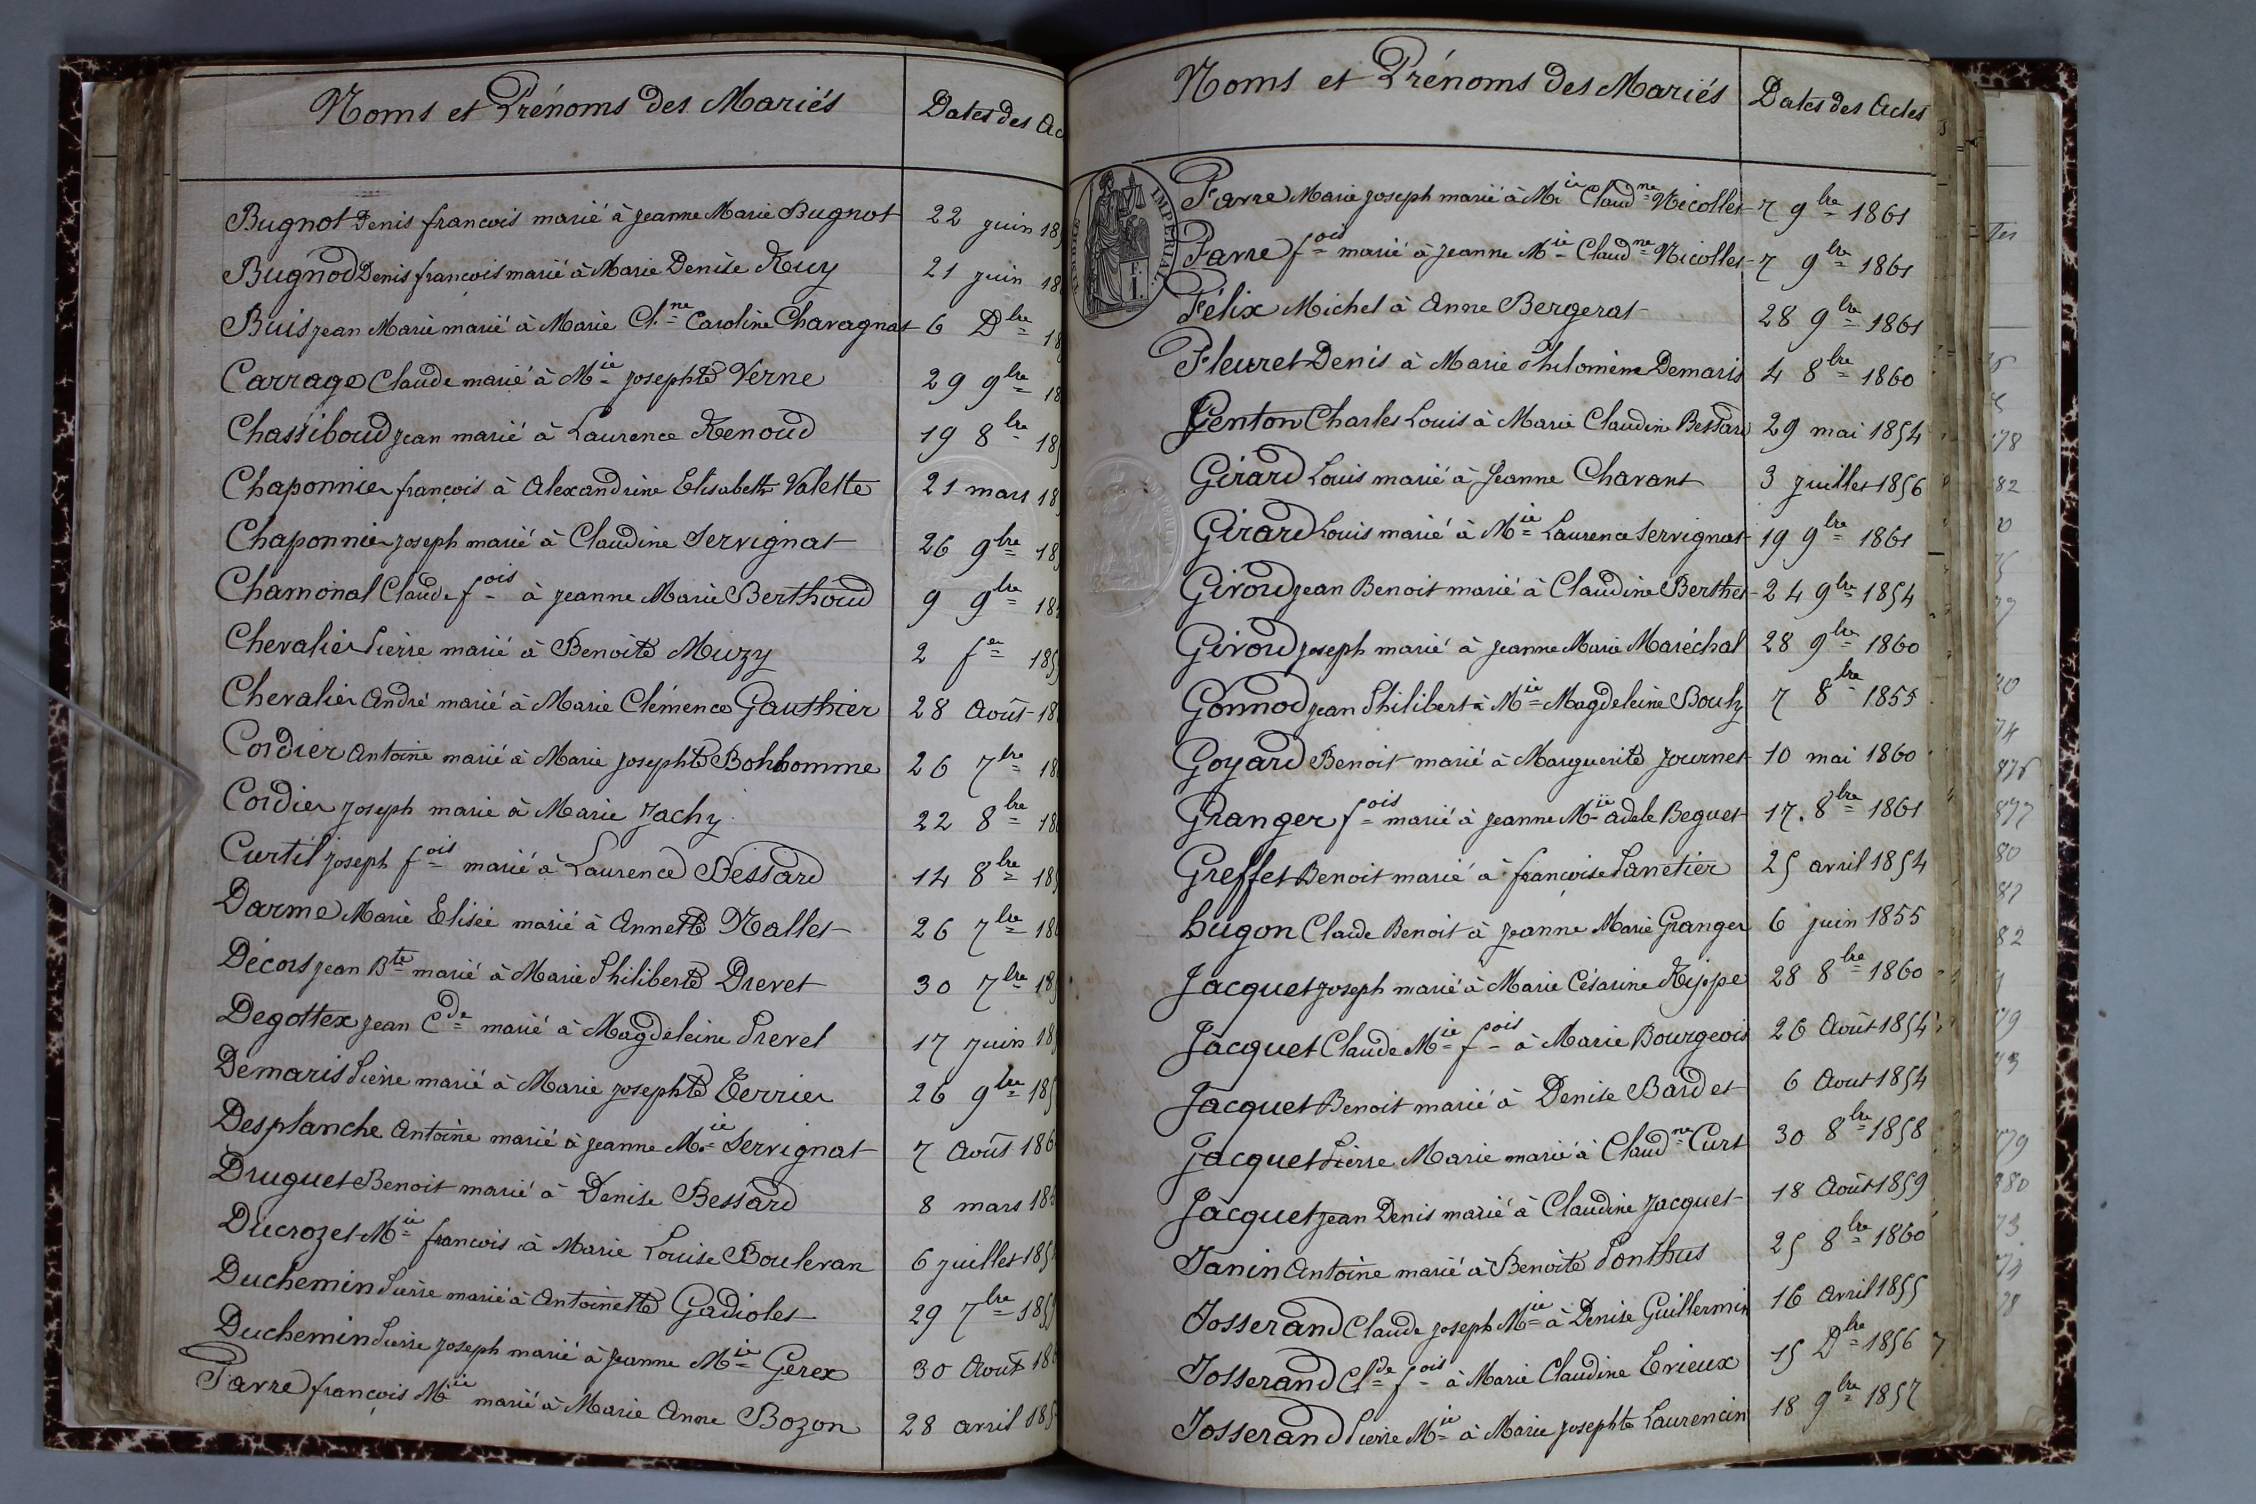 Noms et Prénoms des Mariés
Dates des Ac
Bugnot Denis françois marié à jeanne Marie Bugnot 22 juin 18
Bugnod Denis françois marié à Marie Denise Ruy 21 juin 18
Buis jean Marie marié à Marie Cl.ne Caroline Chavagnat 6 Dbre 18
Carrage Claude marié à Mie josephte Verne 29 9bre 18
Chassiboud jean marié à Laurence Renoud 19 8bre 18
Chaponnier françois à Alexandrine Elisabeth Valette 21 mars 18
Chaponnier joseph marié à Claudine Servignat 26 9bre 18
Chamonal Claude fois à jeanne Marie Berthoud 9 9bre 18
Chevalier Pierre marié à Benoite Muzy 2 fer 185
Chevalier André marié à Marie Clémence Gauthier 28 Août 18
Cordier Antoine marié à Marie josephte Bohbomme 26 7bre 18
Cordier joseph marié à Marie Jachy 22 8bre 18
Curtil joseph fois marié à Laurence Bessard 14 8bre 18
Darme Marie Elisée marié à Annette Nallet 26 7bre 18
Décors jean Bte marié à Marie Philiberte Drevet 30 7bre 18
Degottex jean Cde marié à Magdeleine Prevel 17 juin 18
Demaris Pierre marié à Marie josephte Terrier 26 9bre 185
Desplanche Antoine marié à jeanne Mie Servignat 7 Août 186
Druguet Benoit marié à Denise Bessard 8 mars 18
Ducrozet Mie françois à Marie Louise Boulevan 6 juillet 185
Duchemin Pierre marié à Antoinette Gadiolet 29 7bre 185
Duchemin Pierre joseph marié à jeanne Mie Gerex 30 Août 18
Favre françois Mie marié à Marie Anne Bozon 28 avril 185
Noms et Prénoms des Mariés
Dates des Actes
TIMBRE IMPERIAL
Favre Marie joseph marié à Mie Claudne Nicollet 7 9bre 1861
Favre fois marié à jeanne Mie Claudne Nicollet 7 9bre 1861
Félix Michel à Anne Bergerat 28 9bre 1861
Fleuret Denis à Marie Philomène Demaris 4 8bre 1860
Genton Charles Louis à Marie Claudine Bessard 29 mai 1854
Girard Louis marié à Jeanne Chavant 3 juillet 1856
Girard Louis marié à Mie Laurence Servignat 19 9bre 1861
Giroud jean Benoit marié à Claudine Berthet 24 9bre 1854
Giroud joseph marié à jeanne Marie Maréchal 28 9bre 1860
Gonnod jean Philibert à Mie Magdeleine Bouly 7 8bre 1855
Goyard Benoit marié à Marguerite Journet 10 mai 1860
Granger fois marié à jeanne Mie adele Beguet 17. 8bre 1861
Greffet Benoit marié à françoise Panetier 25 avril 1854
hugon Claude Benoit à jeanne Marie Granger 6 juin 1855
Jacquet joseph marié à Marie Césarine Rippe 28 8bre 1860
Jacquet Claude Mie fois à Marie Bourgeois 26 Août 1854
Jacquet Benoit marié à Denise Bardet 6 Aout 1854
Jacquet Pierre Marie marié à Claudne Curt 30 8bre 1858
Jacquet jean Denis marié à Claudine Jacquet 18 Août 1859
Janin Antoine marié à Benoite Ponthus 25 8bre 1860
Josserand Claude joseph Mie à Denise Guillermin 16 avril 1855
Josserand Clde fois à Marie Claudine Evieux 15 Dbre 1856
Josserand Pierre Mie à Marie josephte Laurencin 18 9bre 1857